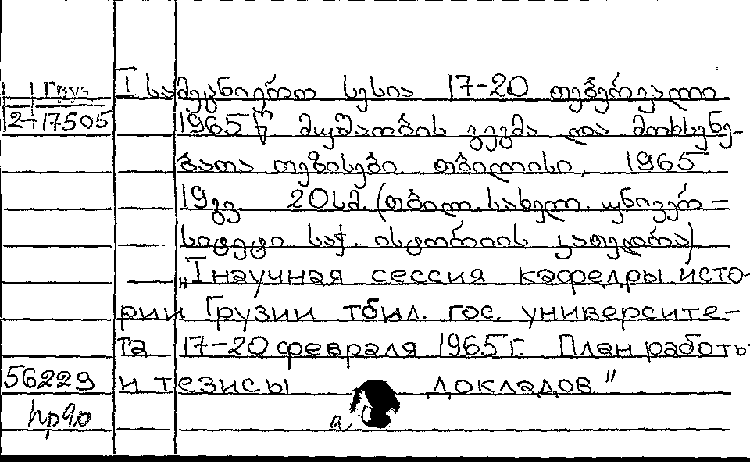 I სამეცნიერო სესია 17-20 თებერვალი
Груз
2-17505
1965წ მუშაობის გეგმა და მოხსენე-
ბათა თეზისები თბილისი, 1965
19გვ 20სმ (თბილ. სახელ. უნივერ=
სიტეტი. საქ. ისტორიის კათედრა)
„I научная сессия кафедры исто-
рии Грузии тбил. гос. университе-
та 17-20 февраля 1965г. План работы
56229
и тезисы докладов"